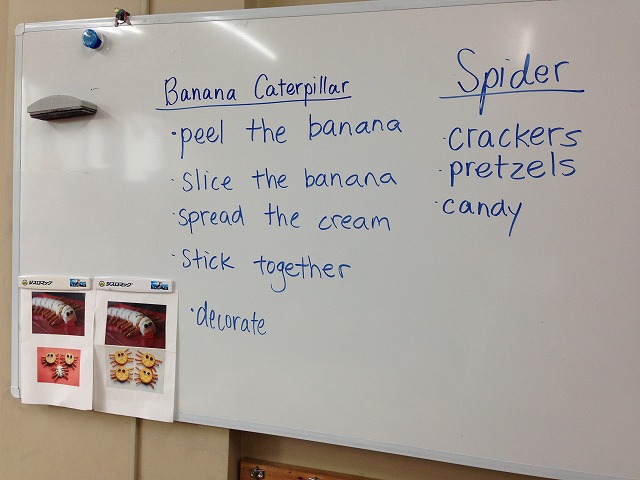 Banana Caterpillar
· peel the banana
· slice the banana
· spread the cream
· stick together
· decorate
Spider
· crackers
· pretzels
· candy